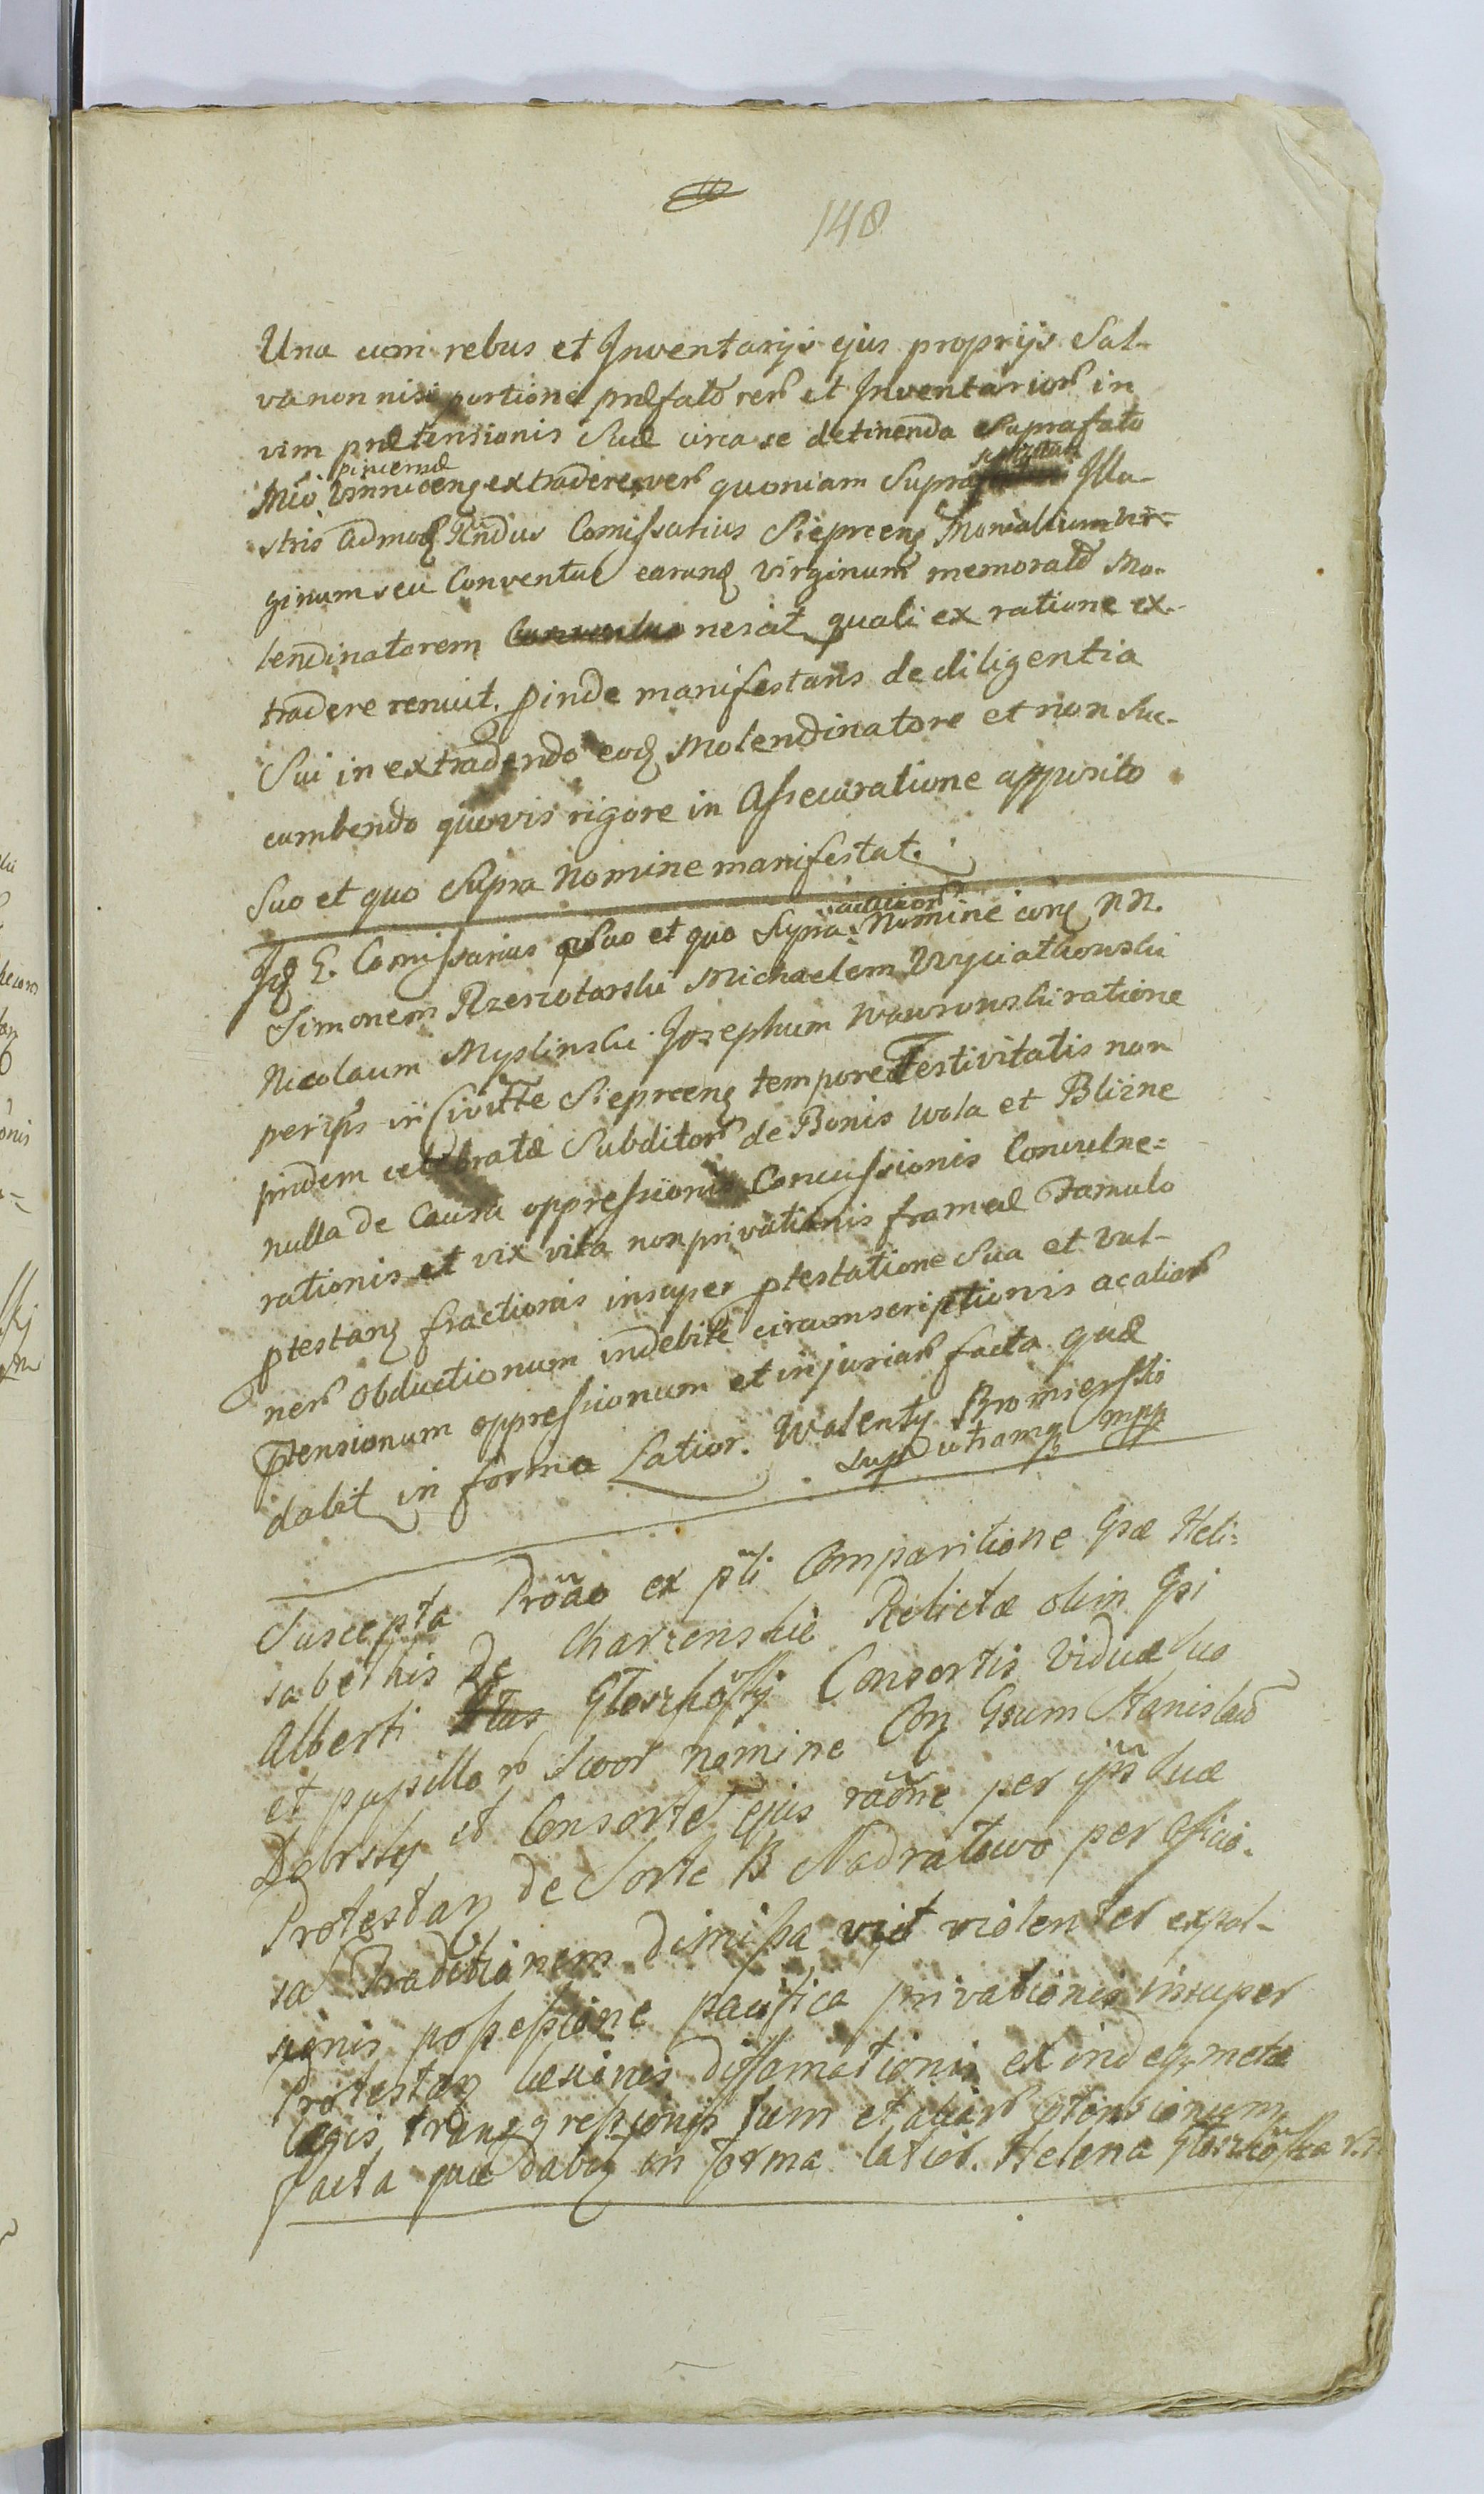 148
Una cum rebus et Inventarÿs ejus proprÿs Sal-
va non nisi portione præfatõ rer et Inventarior in
vim prætensionis Suæ circa se detinenda Suprafato
Mĩo pincernæ Vinnicenq extradere, ver quoniam Supra Illu-
stris Admoq Rñdus Comissarius Siepreenq Monialium Vir-
ginum seu Conventus earunq Virginum memoratõ Mo-
lendinatorem nesiat quali ex ratione ex-
tradere renuit. pinde manifestans de diligentia
Sui in extradendo eoq Molendinatore et non Suc-
cumbendo quovis rigore in Assecuratione apposito
Suo et quo Supra Nomine manifestat.
Iq E. Comissarius Suo et quo Supra Nomine conq NN.
Simonem Michaelem
Nicolaum Myslinski Josephum Wawronski ratione
per ip̃s in Civitte Siepreenq tempore Festivitatis non
pridem celebratæ Subditor de Bonis Wola et Blizne
nulla de Causa oppressionis Concussionis Convulne=
rationis et vix vita non privationis frameæ Famulo
ptestanq fractionis insuper ptestatione Sua et Vul-
ner Obductionum indebitæ circumscriptionis ac aliar
ptensionum oppressionum et injuriar facta quæ
dabit in forma Latior. Walenty Bromierski
Sup utramq mpp
Suscepta Prõão ex p̃li Comparitione Gsæ Heli-
sabethis De Charzenskie Relictæ olim Gsi
Alberti Consortis Viduæ Suo
et pupillor Suor nomine Conq Gsum Stanislaũ
et Consortẽ Ejus rãõne per ip̃s Suæ
Protestanq De Sorte B Nadratowo per Officio-
sa Traditionem Dimissa vijt violenter expul-
sionis possessione pacifica privationis insuper
Protestanq læsionis Diffamationis ex indeq metæ
legis transgressionis Sum et aliar ptensionum
facta quæ dabit in forma latior. Helena